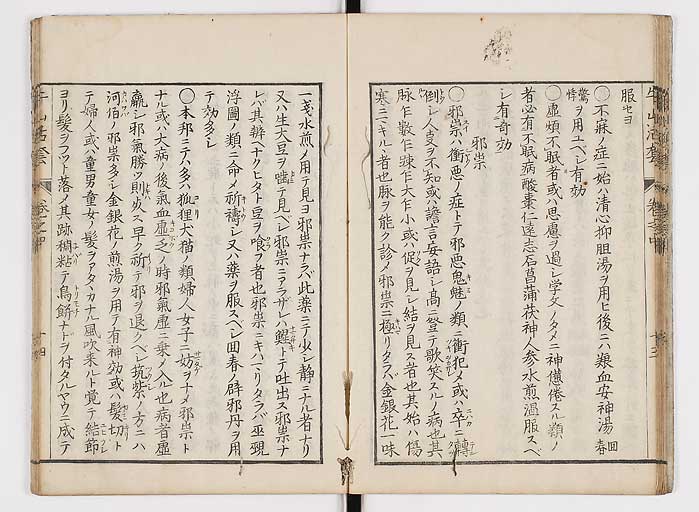 服セヨ
○不寐ノ症ニ始ハ清心抑胆湯ヲ用ヒ後ニハ養血安神湯回春
驚悸ヲ用ユベシ有効
○虚煩不眠者或ハ思慮ヲ過シ学文ノタメニ神倦スル類ノ
者必有不眠病酸棗仁遠志石菖蒲茯神人参水煎温服スベ
シ有奇効
邪祟
○邪祟ハ衝悪ノ症トテ邪悪鬼魅ノ類ニ衝犯ノ或ハ卒ニ轉
倒シ人事ヲ不知或ハ譫言妄語シ髙ニ登テ歌笑スルノ病也其
脉乍數乍疎乍大乍小或ハ促ヲ見シ結ヲ見ス者也其始ハ傷
寒ニマキルヽ者也脉ヲ能ク診メ邪祟ニ極リタラバ金銀花一味
一戔水煎ノ用テ見ヨ邪祟ナラバ此薬ニテ少シ静ニナル者ナリ
又ハ生大豆ヲ嚙テ見ベシ邪祟ニアラザレバ鯹トテ吐出ス邪祟ナ
レバ其辨ヘナクヒタト豆ヲ喰フ者也邪祟ニキハマリタラバ巫覡
浮圖ノ類ニ命メ祈禱シ又ハ薬ヲ服スベシ回春ノ辟邪丹ヲ用
テ効多シ
○本邦ニテハ多ハ狐狸犬猫ノ類婦人女子ニ妨ヲナメ邪祟ト
ナル或ハ大病ノ後氣血虚乏ノ時邪氣虚ニ乗ノ入ル也病者虚
羸シ邪氣勝ツ則必ス早ク祈テ邪ヲ退クベシ筑紫ノ方ニハ
河伯ノ邪祟多シ金銀花ノ煎湯ヲ用テ有神効或ハ髪切ト
テ婦人或ハ童男童女ノ髪ヲアタヽカナル風吹来ルト覚テ結節
ヨリ髪ヲフツト落ノ其跡稠粘テ鳥餅ナドヲ付タルヤウニ成テ
牛山活套
巻之中
十四